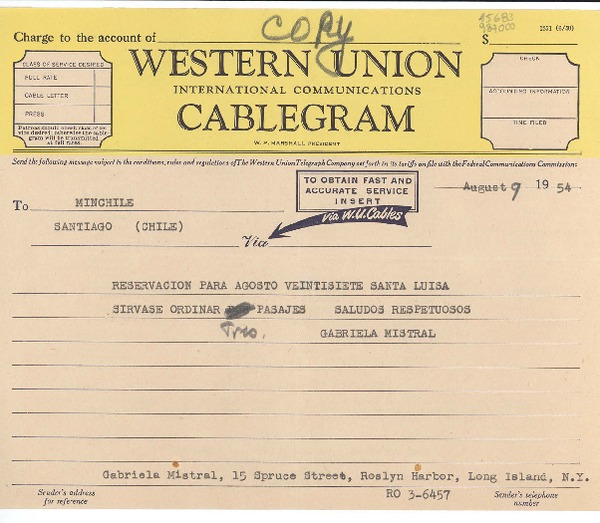 COPY
45683
987000
Charge to the account of
$
1271 (6/50)
CLASS OF SERVICE DESIRED
FULL RATE
CABLE LETTER
PRESS
Patrons should check class of service desired; otherwise the cablegram will be transmitted at full rates.
WESTERN UNION
INTERNATIONAL COMMUNICATIONS
CABLEGRAM
W. P. MARSHALL, PRESIDENT
CHECK
ACCOUNTING INFORMATION
TIME FILED
Send the following message subject to the conditions, rules and regulations of The Western Union Telegraph Company set forth in its tariffs on file with the Federal Communications Commission:
TO OBTAIN FAST AND
ACCURATE SERVICE
INSERT
via W.U. Cables
August 9 19 54
To MINCHILE
SANTIAGO (CHILE)
Via
RESERVACION PARA AGOSTO VEINTISIETE SANTA LUISA
SIRVASE ORDINAR PASAJES SALUDOS RESPETUOSOS
Tres. GABRIELA MISTRAL
Gabriela Mistral, 15 Spruce Street, Roslyn Harbor, Long Island, N.Y.
RO 3-6457
Sender's address
for reference
Sender's telephone
number